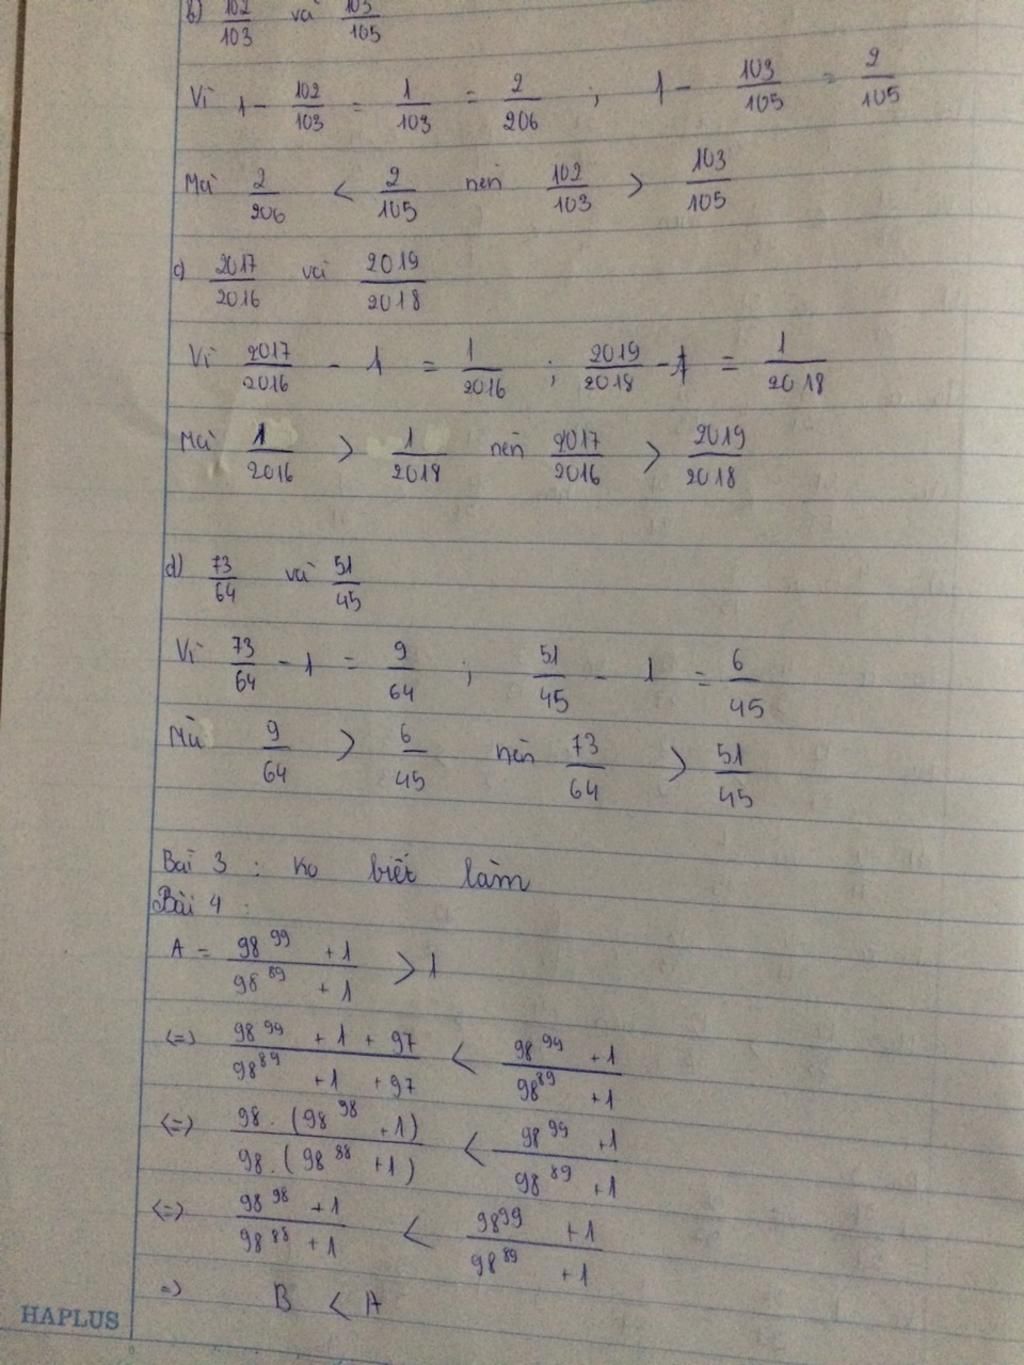 b) 102/103 và 103/105
Vì 1 - 102/103 = 1/103 = 2/206 ; 1 - 103/105 = 2/105
Mà 2/206 < 2/105 nên 102/103 > 103/105
c) 2017/2016 và 2019/2018
Vì 2017/2016 - 1 = 1/2016 ; 2019/2018 - 1 = 1/2018
Mà 1/2016 > 1/2018 nên 2017/2016 > 2019/2018
d) 73/64 và 51/45
Vì 73/64 - 1 = 9/64 ; 51/45 - 1 = 6/45
Mà 9/64 > 6/45 nên 73/64 > 51/45
Bài 3 : Ko biết làm
Bài 4 :
A = (98^99 + 1)/(98^89 + 1) > 1
<=> (98^99 + 1 + 97)/(98^89 + 1 + 97) < (98^99 + 1)/(98^89 + 1)
<=> (98.(98^98 + 1))/(98.(98^88 + 1)) < (98^99 + 1)/(98^89 + 1)
<=> (98^98 + 1)/(98^88 + 1) < (98^99 + 1)/(98^89 + 1)
=> B < A
HAPLUS